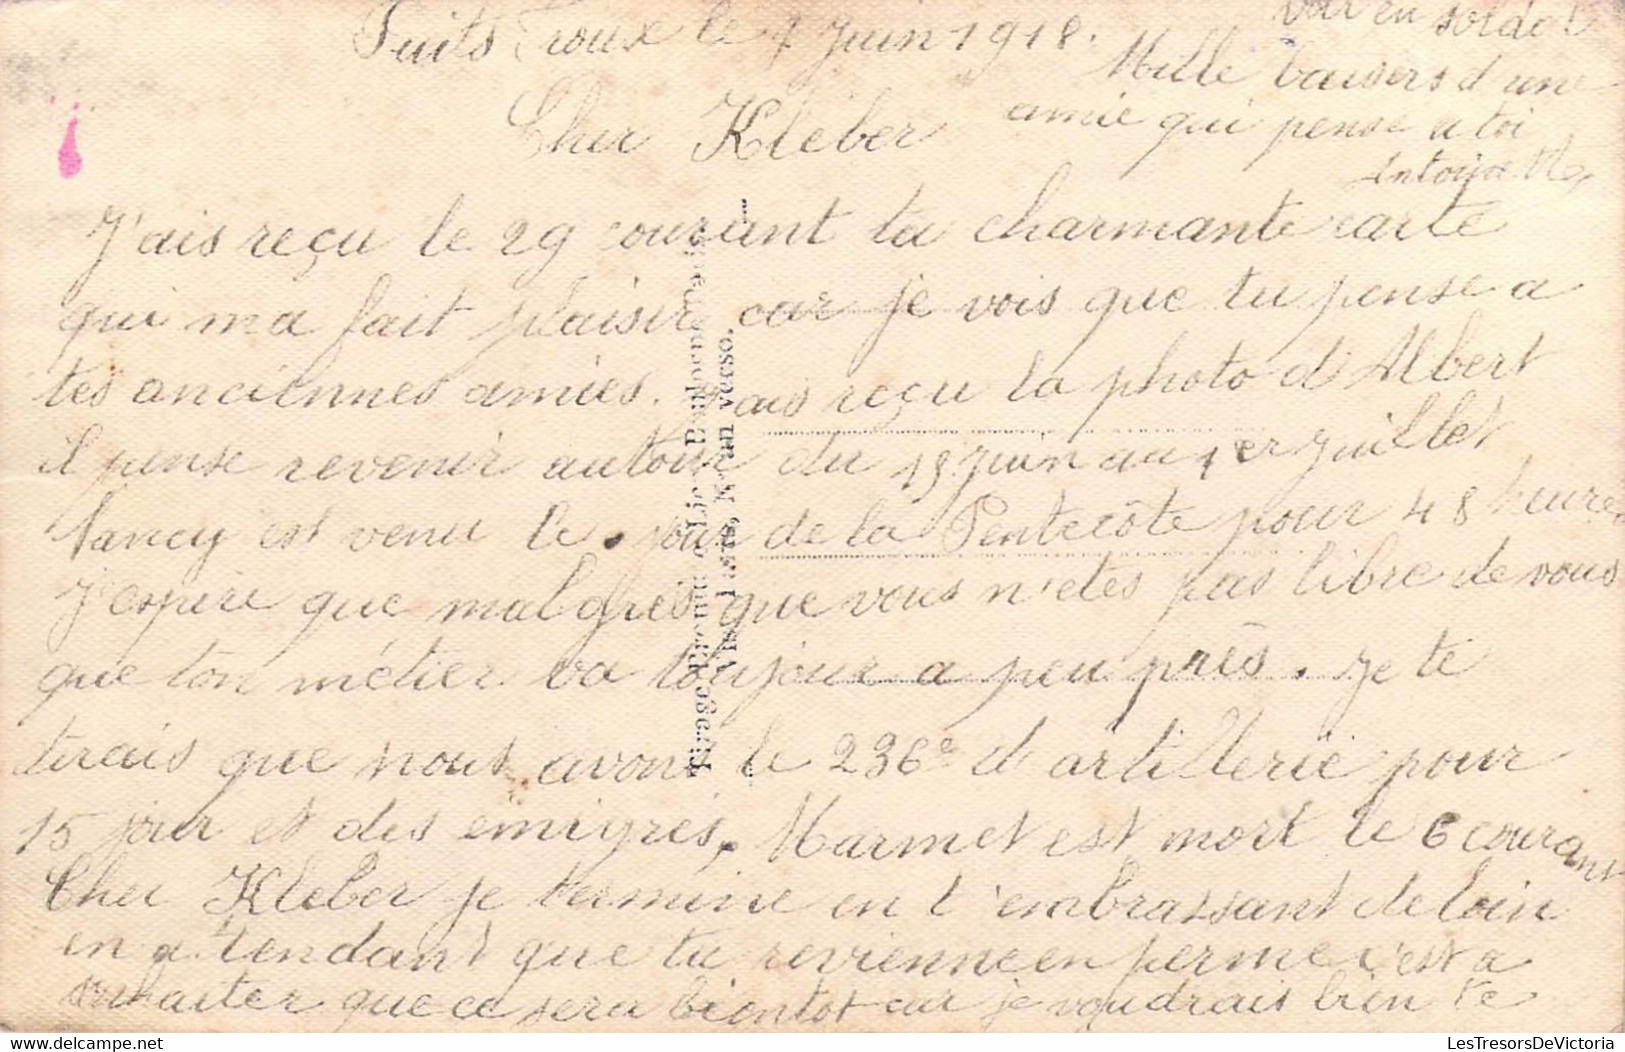 Puits Froux le 7 Juin 1918.
Cher Kléber
J'ais reçu le 29 courant ta charmante carte
qui ma fait plaisir car je vois que tu pense a
tes anciennes amies. J'ais reçu la photo d'Albert
il pense revenir autour du 15 juin au 1er Juillet
Nancy est venu le jour de la Pentecôte pour 48 heures
J'espère que malgrès que vous n'etes pas libre de vous
que ton métier va toujour a peu près. Je te
dirais que nous avons le 236e d'artillerie pour
15 jour et des émigrés, Marmet est mort le 6 courant
Cher Kleber je termine en t'embrassant de loin
en attendant que tu revienne en perme c'est a
souhaiter que ce sera bientot car je voudrais bien te
voir en soldat
Mille baisers d'une
amie qui pense a toi
Visa Paris, N° au verso.
LesTresorsDeVictoria